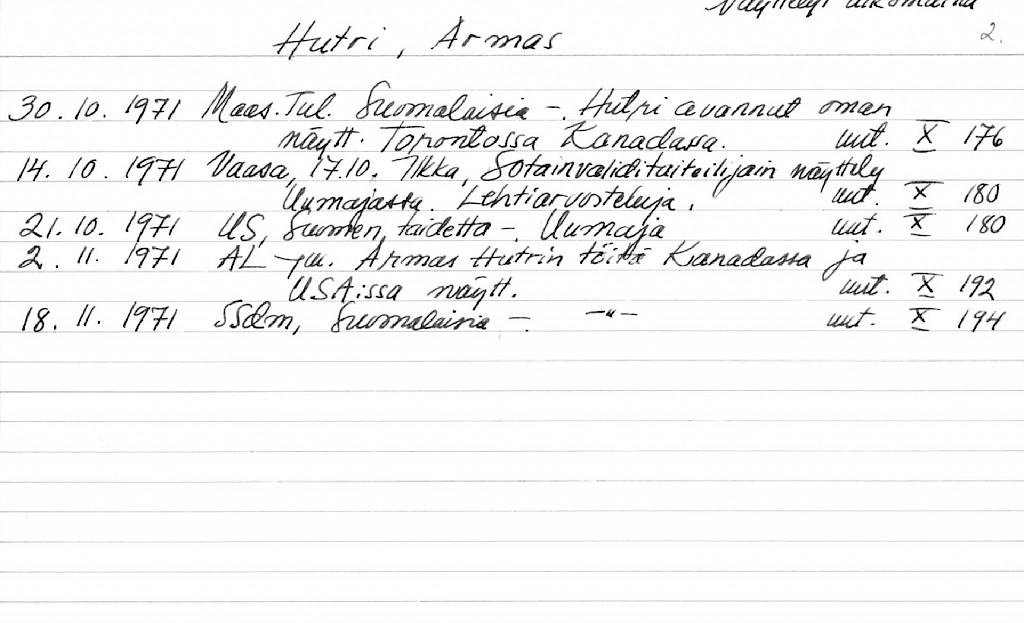 Näyttelyt ulkomailla
2.
Hutri, Armas
30.10.1971 Maas.Tul. Suomalaisia -. Hutri avannut oman
näytt. Torontossa Kanadassa. uut. X 176
14.10.1971 Vaasa, 17.10. Ilkka, Sotainvaliditaiteilijain näyttely
Uumajassa. Lehtiarvosteluja. uut. X 180
21.10.1971 US, Suomen taidetta -. Uumaja uut. X 180
2.11.1971 AL -ym. Armas Hutrin töitä Kanadassa ja
USA:ssa näytt. uut. X 192
18.11.1971 SSdm, Suomalaisia -. -"- uut. X 194